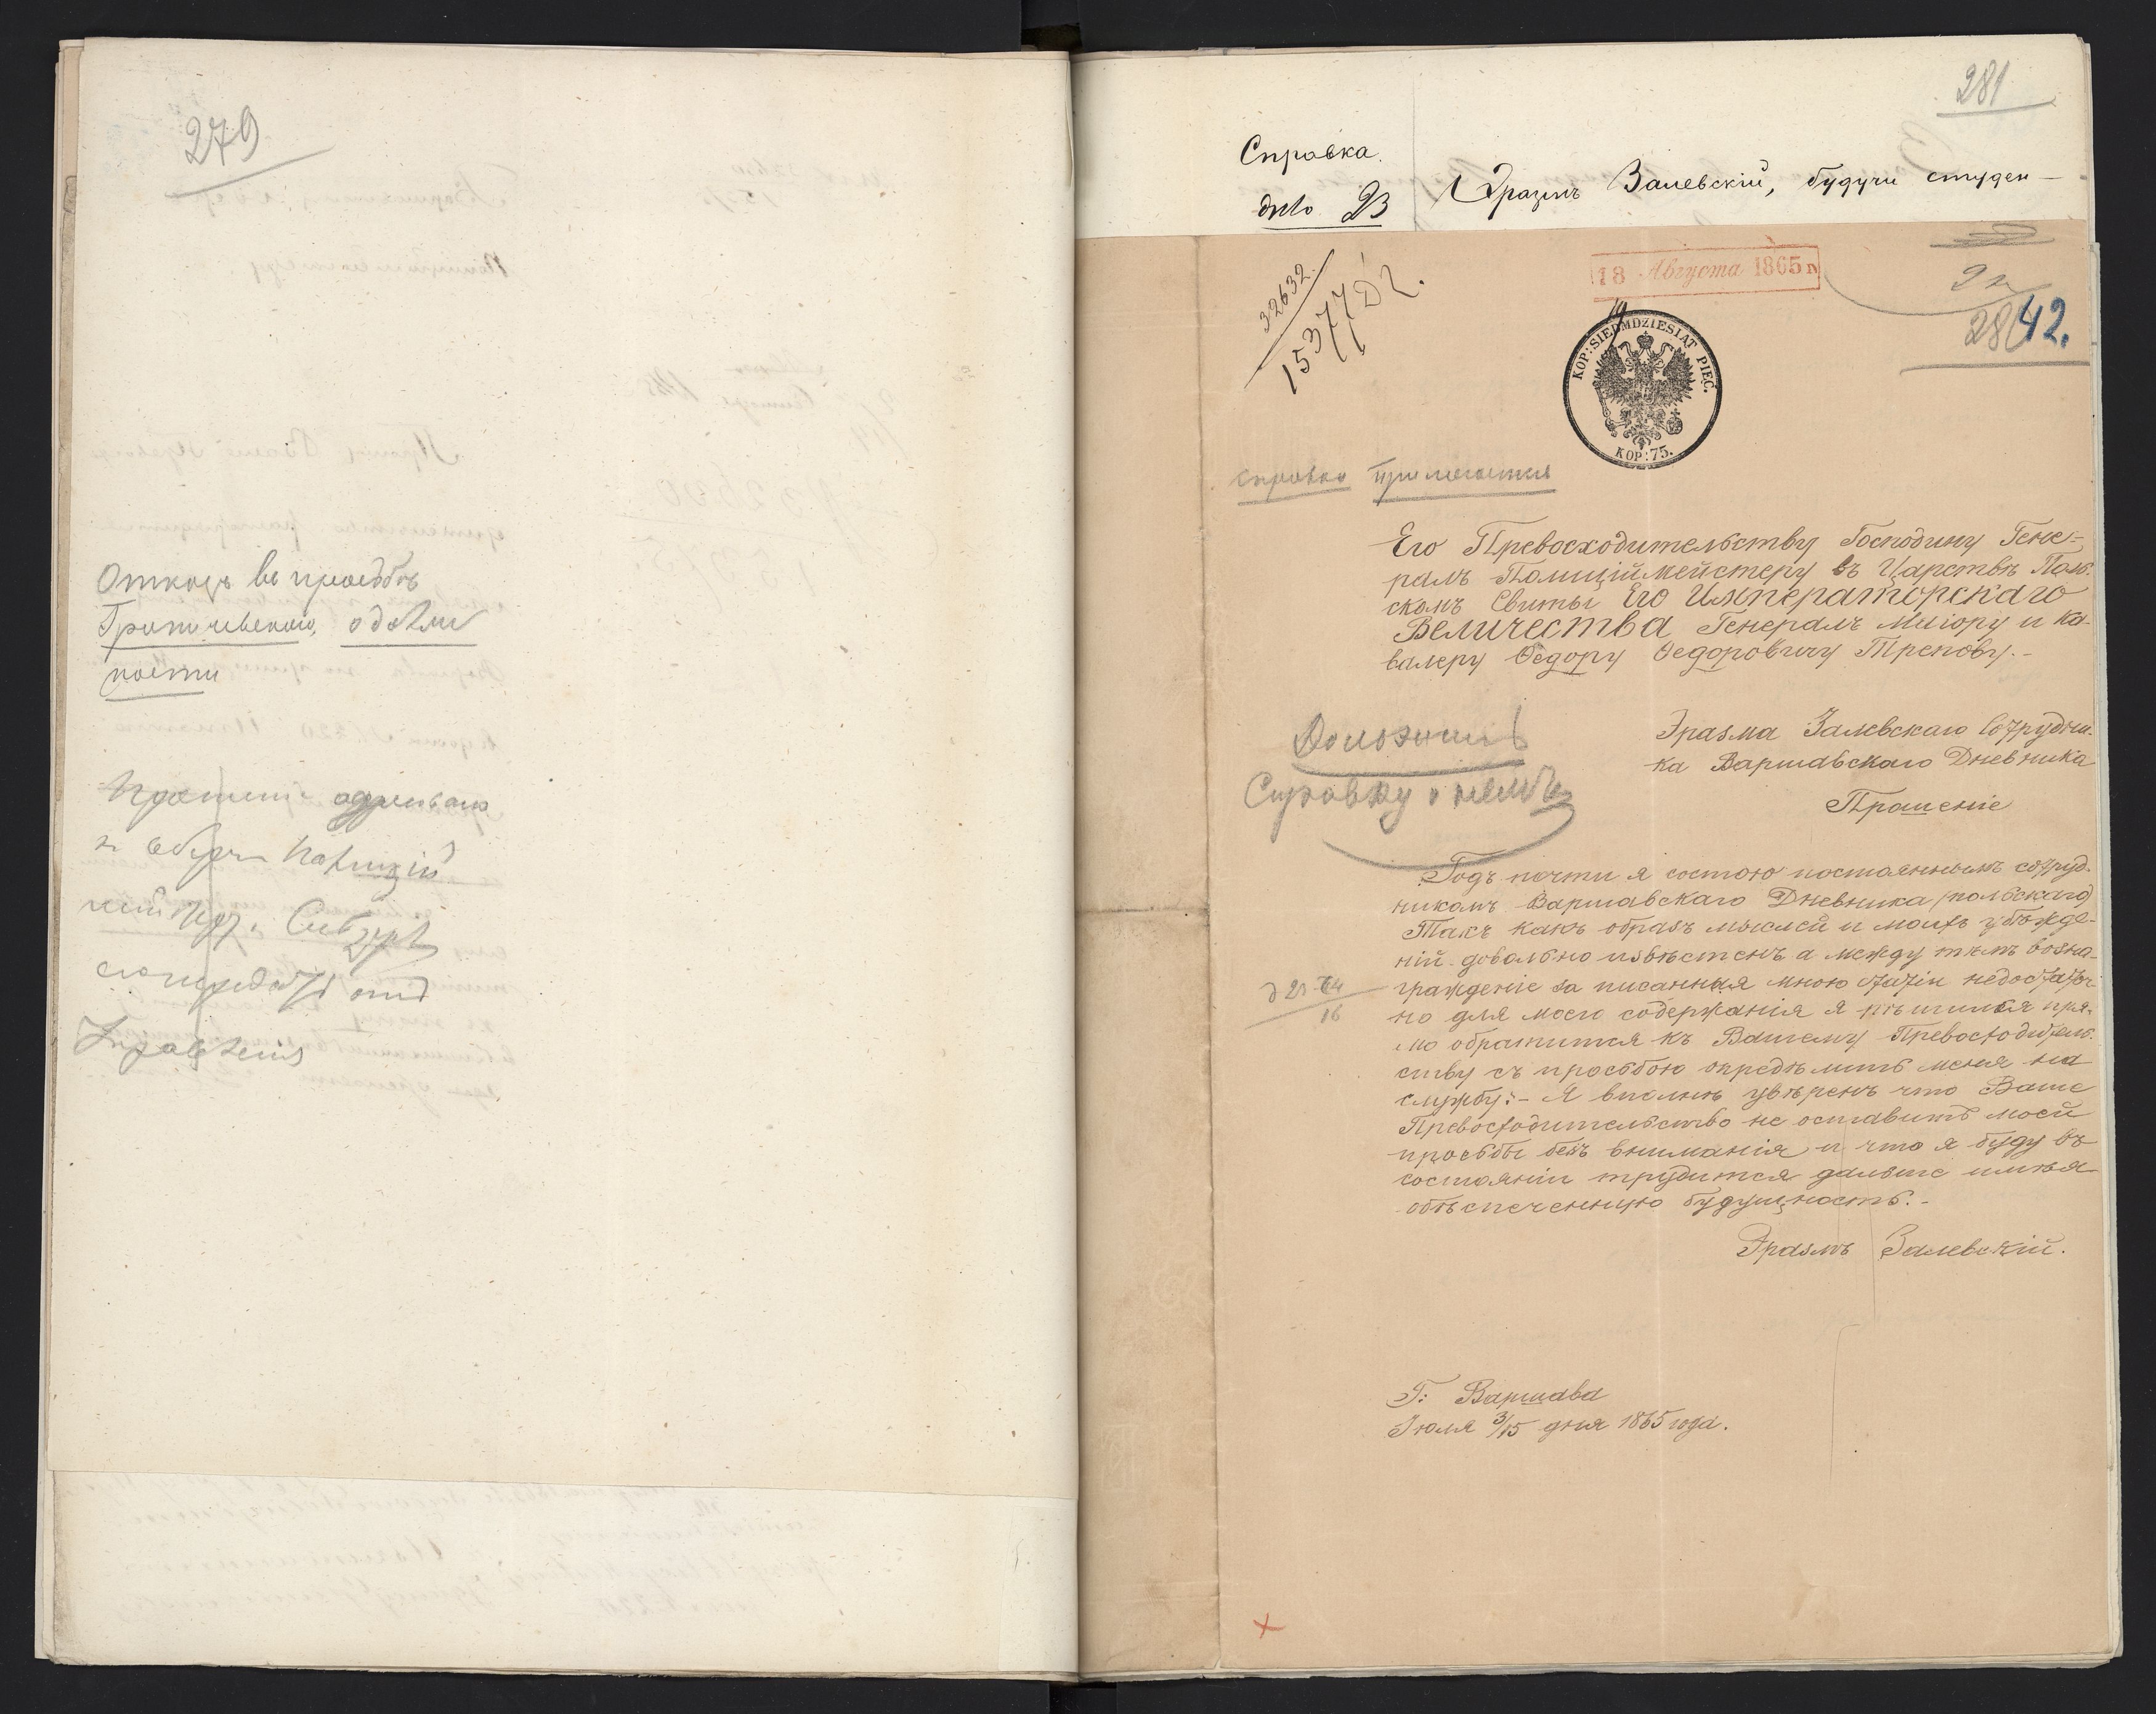 279
Отказъ въ просьбѣ
о долж
ности
Прошеніе адресовано
281
Справка.
дѣло 23
Эразмъ Залевскій, будучи студен-
18 Августа 1865 г.
32632
15377
42.
KOP: SIEDMDZIESIĄT PIĘĆ.
KOP: 75.
справка прилагается
Его Превосходительству Господину Гене-
ралъ Полиціймейстеру въ Царствѣ Поль-
скомъ Свиты Его Императорскаго
Величества Генералъ Маіору и ка-
валеру Ѳедору Ѳедоровичу Трепову.-
Эразма Залевскаго Сотрудни-
ка Варшавскаго Дневника
Прошеніе
Доложить
Справку о немъ
Годъ почти я состою постояннымъ сотруд-
никомъ Варшавскаго Дневника (польскаго)
Такъ какъ образъ мыслей и моихъ убѣжде-
ній довольно извѣстенъ а между тѣмъ возна-
гражденіе за писанныя мною статіи недостаточ-
но для моего содержанія я рѣшился пря-
мо обратится къ Вашему Превосходитель-
ству съ просьбою опредѣлить меня на
службу:- Я вполнѣ увѣренъ что Ваше
Превосходительство не оставитъ моей
просьбы безъ вниманія и что я буду въ
состояніи трудится дальше имѣя
обѣспеченную будущность.-
Эразмъ Залевскій.
Г: Варшава
Іюля 3/15 дня 1865 года.